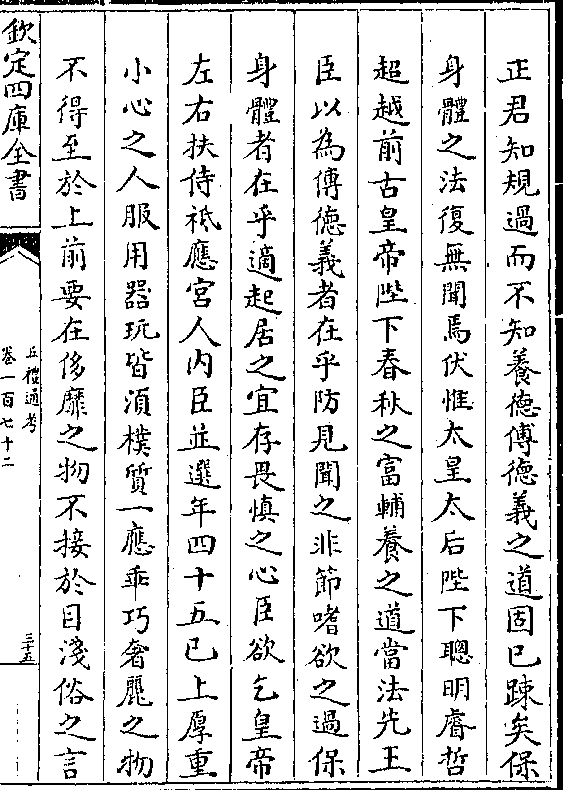 正君知規過而不知養德傅德義之道固已踈矣保
身體之法復無聞焉伏惟太皇太后陛下聰明睿哲
超越前古皇帝陛下春秋之富輔養之道當法先王
臣以為傅德義者在乎防見聞之非節嗜欲之過保
身體者在乎適起居之宜存畏慎之心臣欲乞皇帝
左右扶侍祗應宮人内臣並選年四十五已上厚重
小心之人服用器玩皆須樸質一應乖巧奢麗之物
不得至於上前要在侈靡之物不接於目淺俗之言
欽定四庫全書
五禮通考
卷一百七十二
三十五